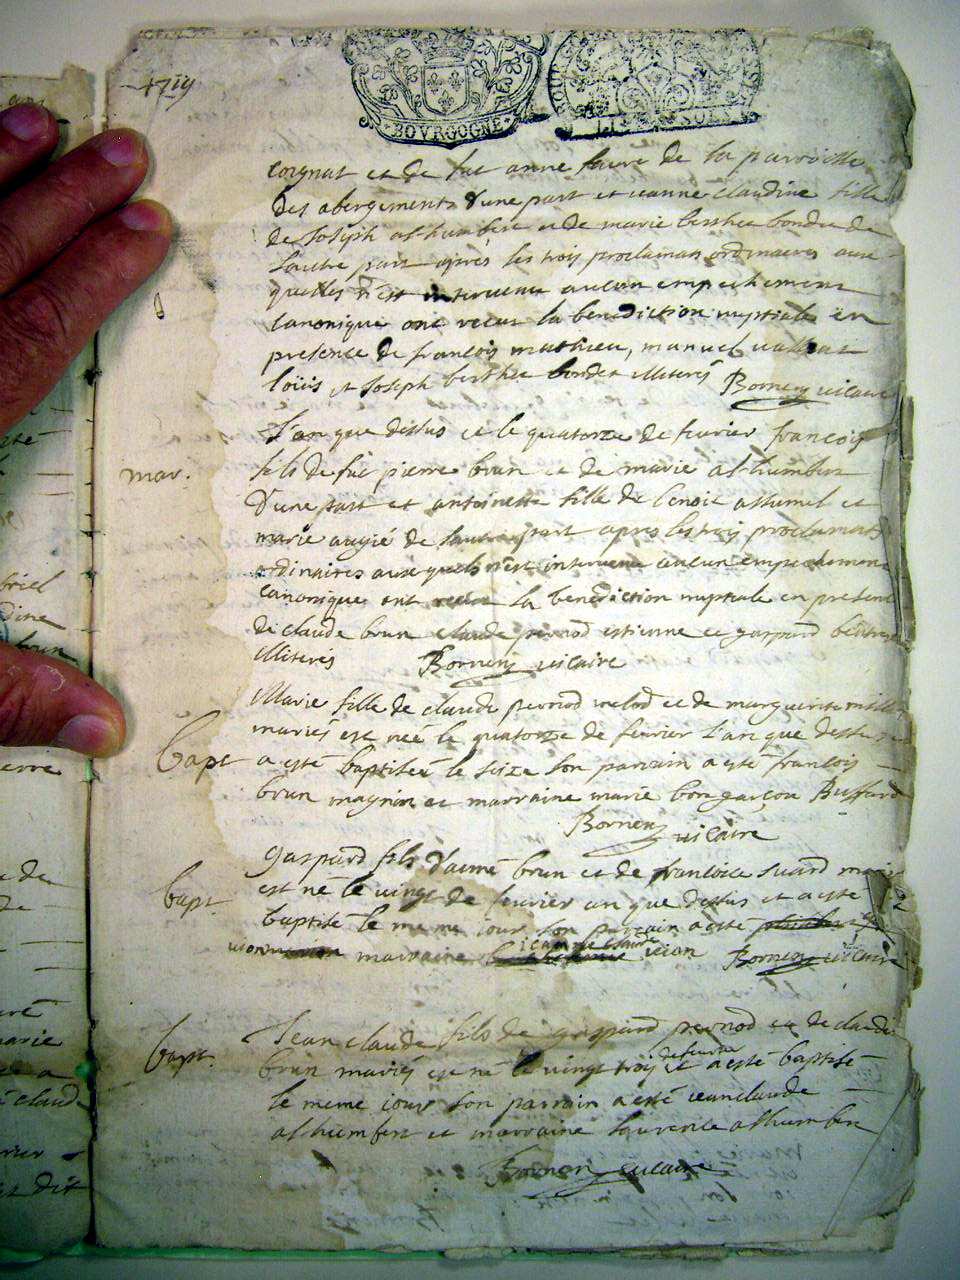 1719
BOVRGOGNE
SOLS
coignat et de fut anne faure de la parroisse
des abergements d'une part et ieanne claudine fille
de Joseph alhumbert et de marie berthet bondet de
lautre part apres les trois proclamats ordinaires aux
quelles n'est intervenu aucun empechement
canonique ont receu la benediction nuptiale en
presence de francois mathieu, manuel
loüis et Joseph berthet bondet illiterés Bornen vicaire
L'an que dessus et le quatorze de fevrier francois
mar.
fils de fut pierre brun et de marie alhumbert
d'une part et antoinette fille de benoit alhumel et
marie augié de lautre part apres les trois proclamats
ordinaires aux quels n'est intervenu aucun empechement
canonique ont receu la benediction nuptiale en presence
de claude brun claude pernod estienne et gaspard
illiterés Bornen vicaire
Marie fille de claude pernod et de marguerite
mariés est née le quatorze de fevrier l'an que dessus
Bapt
a esté baptiseé le seize son parrain a esté francois
brun magnin et marraine marie bongarçon Buffard
Bornen vicaire
gaspard fils d'aimé brun et de francoise suard mariés
Bapt
est né le vingt de fevrier an que dessus et a esté
baptisé le meme iour son parrain a esté
ieanne claude
marraine Bornen vicaire
Jean claude fils de gaspard pernod et de claudi
bapt.
de fevrier
brun mariés est né le vingt trois et a esté baptisé
le meme iour son parrain a esté ieanclaude
alhumbert et marraine laurence alhumbert
Bornen vicaire